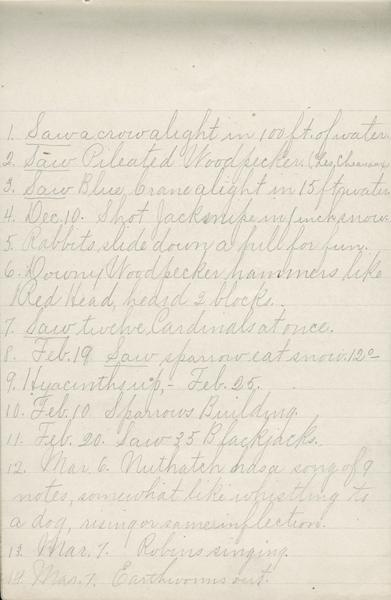 1. Saw a crow alight in 100 ft. of water.
2. Saw Pileated Woodpecker. (Les Cheneaux
3. Saw Blue Crane alight in 15 ft water
4. Dec. 10. Shot Jacksnipe in 1 inch snow.
5. Rabbits slide down a hill for fun.
6. Downy Woodpecker hammers like
Red Head, heard 2 blocks.
7. Saw twelve Cardinals at once.
8. Feb. 19 Saw sparrow eat snow. 12°
9. Hyacinths up, - Feb. 25.
10. Feb. 10 Sparrows Building.
11. Feb. 20. Saw 35 Blackjacks.
12. Mar. 6. Nuthatch has a song of 9
notes, somewhat like whistling to
a dog, rising or same inflection.
13. Mar. 7. Robins singing.
14. Mar. 7. Earthworms out.